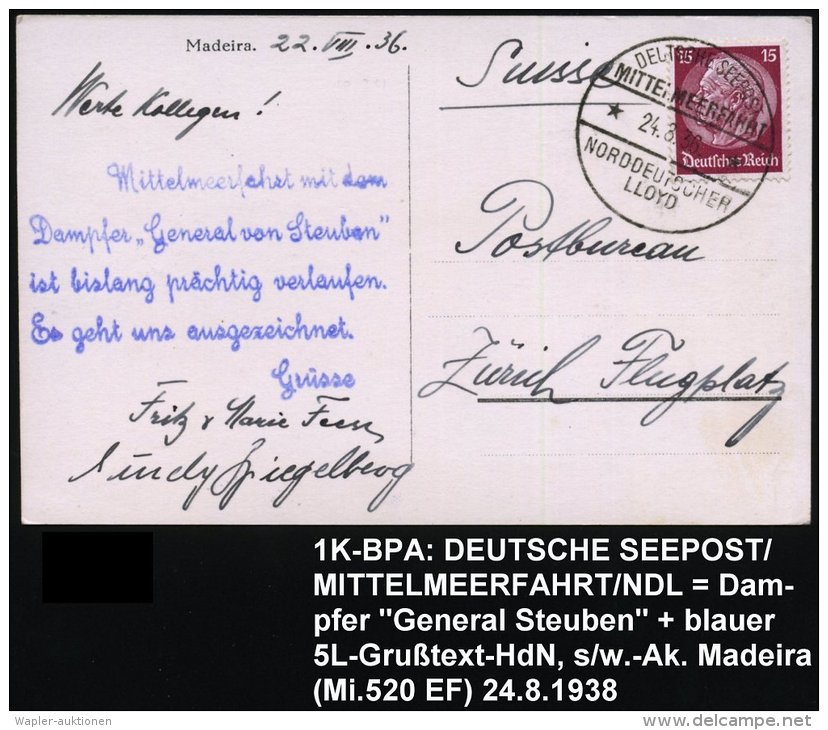 Madeira. 22. VIII. 36.
Werte Kollegen!
Mittelmeerfahrt mit dem
Dampfer „General von Steuben"
ist bislang prächtig verlaufen.
Es geht uns ausgezeichnet.
Grüsse
Fritz & Marie
Spiegelberg
Suisse
15 15
Deutsches Reich
DEUTSCHE SEEPOST
MITTELMEERFAHRT
* 24.8.36 *
NORDDEUTSCHER
LLOYD
Postbureau
Zürich Flugplatz
1K-BPA: DEUTSCHE SEEPOST/
MITTELMEERFAHRT/NDL = Dam-
pfer "General Steuben" + blauer
5L-Grußtext-HdN, s/w.-Ak. Madeira
(Mi.520 EF) 24.8.1938
Wapler-auktionen
delcampe.net